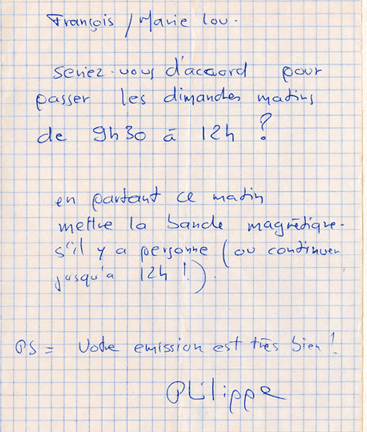 François / Marie Lou.
seriez-vous d'accord pour
passer les dimanches matins
de 9h30 à 12h ?
en partant ce matin
mettre la bande magnétique.
s'il y a personne (ou continuer
jusqu'a 12h !).
PS = Votre emission est très bien !
PHilippe